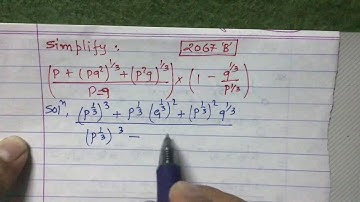 Simplify : 2067 'B'
(P + (PQ²)^1/3 + (P²Q)^1/3 / P-Q) × (1 - Q^1/3 / P^1/3)
Solⁿ, (P^1/3)^3 + P^1/3 (Q^1/3)^2 + (P^1/3)^2 Q^1/3
(P^1/3)^3 -